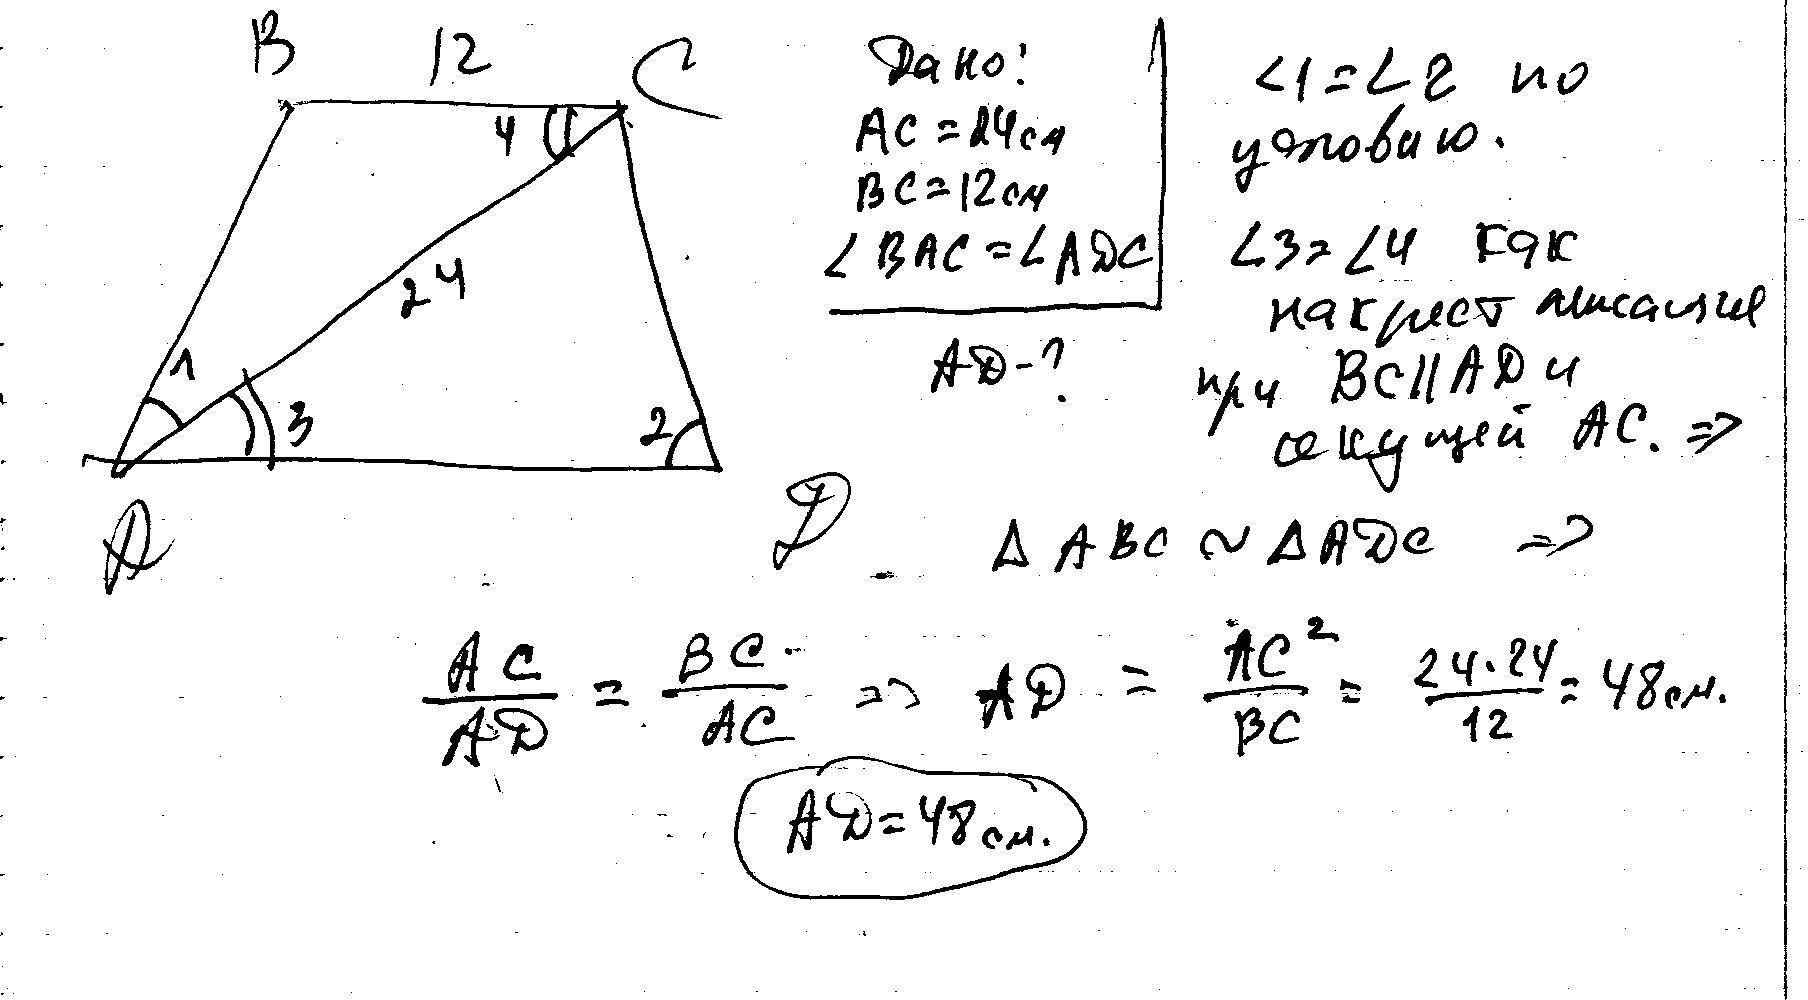 B 12 C
4
24
1
3
2
A
D
Дано:
AC = 24 см
BC = 12 см
∠ BAC = ∠ ADC
AD - ?
∠1 = ∠2 по
условию.
∠3 = ∠4 как
накрест лежащие
при BC || AD и
секущей AC. =>
Δ ABC ~ Δ ADC =>
AC/AD = BC/AC => AD = AC²/BC = 24·24/12 = 48 см.
AD = 48 см.